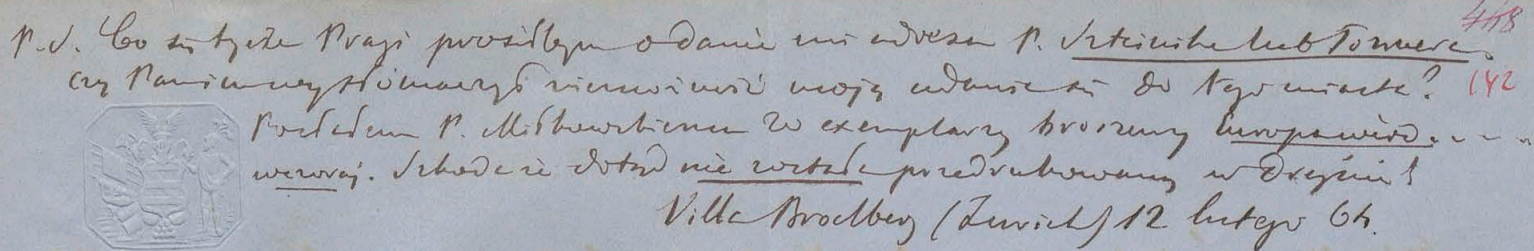 418
P.S. Co się tycze Pragi prosiłbym o danie mi adresu P. lub
czy Panu wytłómaczyć niemożność moję udania się do tego miasta? 142
Posłałem P. Miłkowskiemu 20 exemplarzy broszury
wczoraj. Szkoda że dotąd nie została przedrukowaną w Dreźnie!
Villa Brodberg (Zurich) 12 lutego 64.